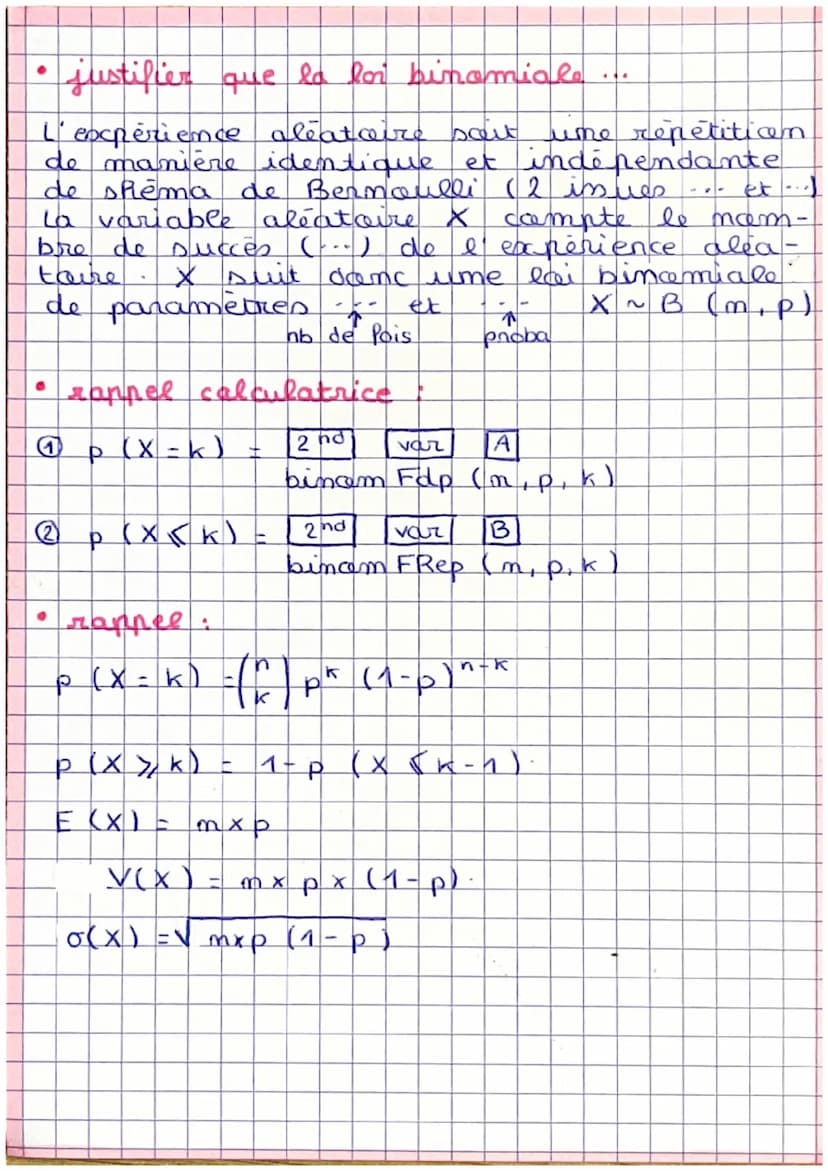 • justifier que la loi binomiale ...
L'expérience aléatoire soit une répétition
de manière identique et indépendante
de shéma de Bernoulli (2 issues ... et ...)
La variable aléatoire X compte le nom-
bre de succès (...) de l'expérience aléa-
toire. X suit donc une loi binomiale
de paramètres ... et ... X ~ B (n, p)
↑ nb de fois ↑ proba
• rappel calculatrice :
① p (X = k) = 2nd var A
binom Fdp (n, p, k)
② p (X ⩽ k) = 2nd var B
binom FRep (n, p, k)
• rappel :
p (X = k) = (n k) p^k (1-p)^n-k
p (X ⩾ k) = 1 - p (X ⩽ k-1).
E (X) = n × p
V(X) = n × p × (1-p).
σ(X) = √n×p (1-p)